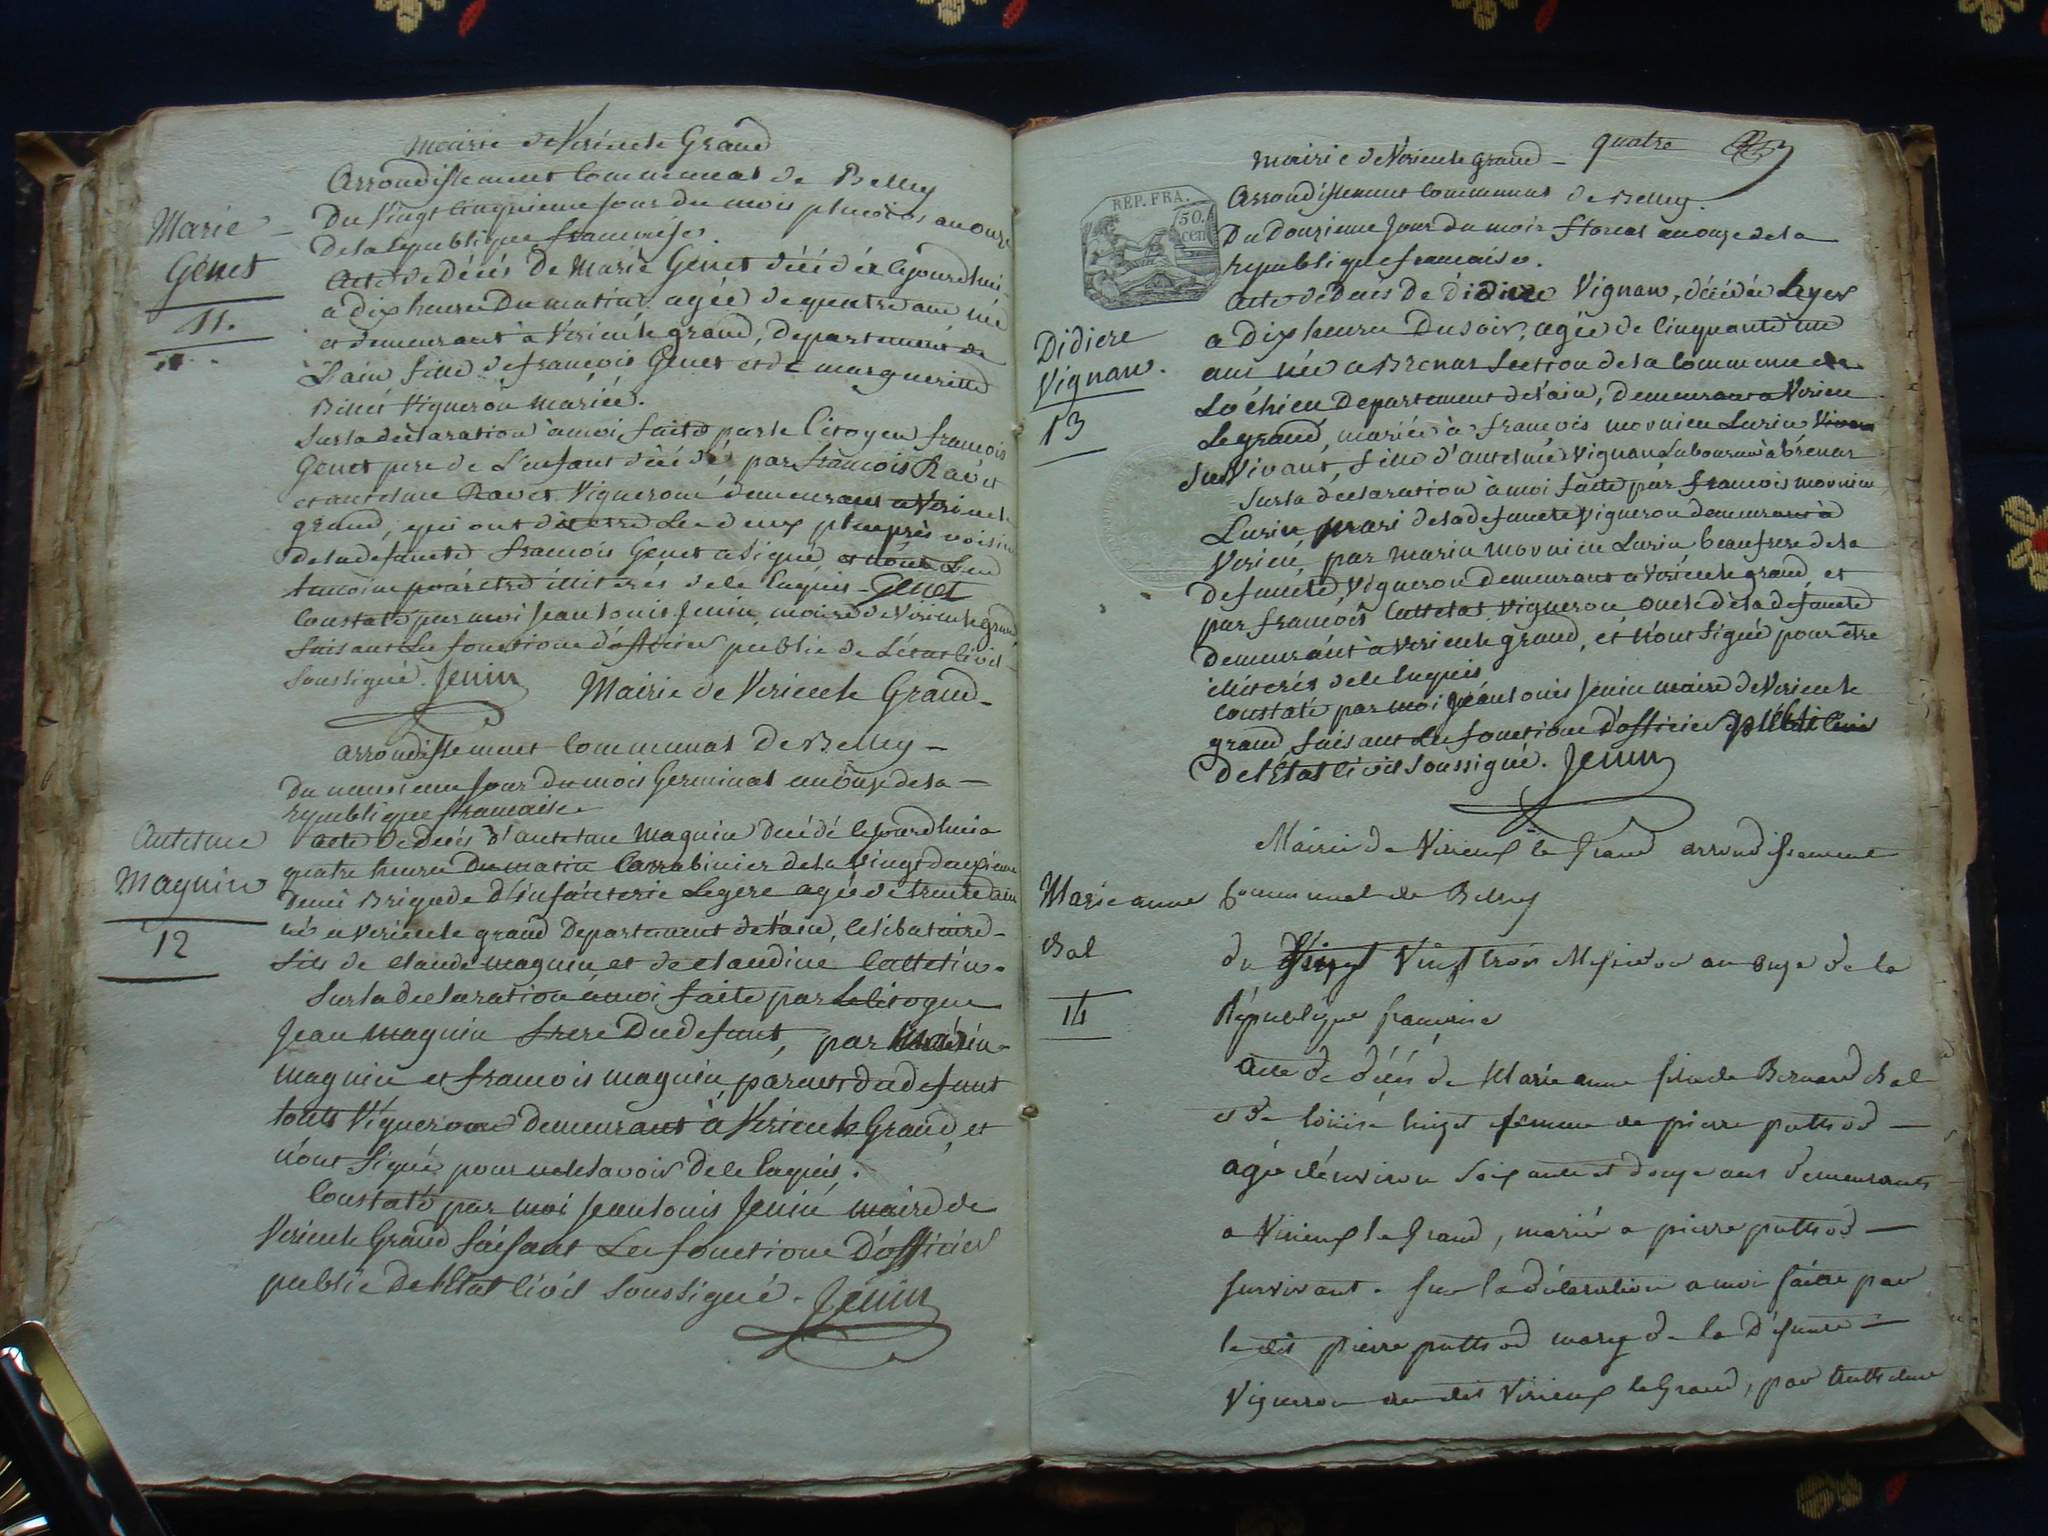 mairie de Virieu le Grand
Arrondissement Communal de Belley
Du Vingt Cinquieme Jour du mois pluviose an onze
de la Republique francaise.
Marie
Genet
11.
Acte de Décés De Marie Genet décédée le jourd'hui
a dix heures Du matin, agée de quatre ans née
et demeurant à Virieu le grand, Departement de
L'ain fille de francois Genet et de margueritte
Vigneron mariée.
Sur la déclaration à moi faite par le Citoyen francois
Genet pere de L'enfant décédé, par francois Ravet
et antelme Ravet Vignerons demeurant a Virieu le
grand, qui ont dit etre Les deux plus près voisins
de la defuncte francois Genet a signé et non Les
temoins pour etre illiterés de le Requis - Genet
Constaté par moi Jean Louis Jenin, maire de Virieu le grand
faisant Les fonctions d'officier public de L'état Civil
soussigné. Jenin
Mairie de Virieu le Grand -
arrondissement Communal de Belley -
Du neuvieme Jour du mois Germinal an onze de la -
republique francaise
Antelme
Magnin
12
acte de Decés d'antelme Magnin Decédé le jourd'hui a
quatre heures Du matin Carrabinier de la Vingt deuxieme
Demi Brigade d'infanterie Legere agé de trente ans
né a Virieu le grand Departement de l'ain, Celibataire -
fils de Claude magnin et de Claudine Cattelin.
Sur la declaration à moi faite par le Citoyen
Jean magnin frere Du defunt, par Marin -
magnin et francois magnin parents du defunt
touts Vignerons Demeurant à Virieu le Grand, et
n'ont signé pour ne le savoir de le Requis.
Constaté par moi Jean Louis Jenin maire de
Virieu le Grand faisant Les fonctions D'officier
public de l'Etat Civil soussigné. Jenin
quatre
mairie de Virieu le grand -
REP. FRA.
50.
cen
Arrondissement Communal de Belley.
Du Douzieme Jour du mois floreal an onze de la
republique francaise.
Didiere
Vignan.
13
Acte de Decés De Didiere Vignan, décédée Leyer
a Dix heures Du soir, agée de Cinquante un
ans née a Brenas section de la Commune de
Lochieu Departement de l'ain, Demeurant a Virieu
Le grand, mariée à francois mounien Lurin
survivant, fille d'antelme Vignan Laboureur à brénas
Sur la déclaration à moi faite par francois mounien
Lurin mari de la defuncte Vigneron demeurant à
Virieu, par marin mounien Lurin beaufrere de la
defuncte, Vigneron demeurant a Virieu le grand, et
par francois Cattelat Vigneron oncle de la defuncte
demeurant a Virieu le grand, et n'ont signé pour être
illiterés de le Requis
Constaté par moi Jean Louis Jenin maire de Virieu le
grand faisant Les fonctions d'officier public
De l'Etat Civil soussigné. Jenin
Mairie de Virieux le Grand arrondissement
Communal de Belley
Marie anne
Bal
14
du Vingt trois Messidor an onze de la
République francaise
Acte de décés de Marie anne fille de Bernard Bal
et de louise femme de pierre puthod -
agée d'environ soixante et douze ans demeurante
a Virieux le Grand, mariée a pierre puthod -
survivant. Sur la déclaration a moi faite par
le dit pierre puthod mary de la défunte -
Vigneron au dit Virieux le Grand, par Anthelme